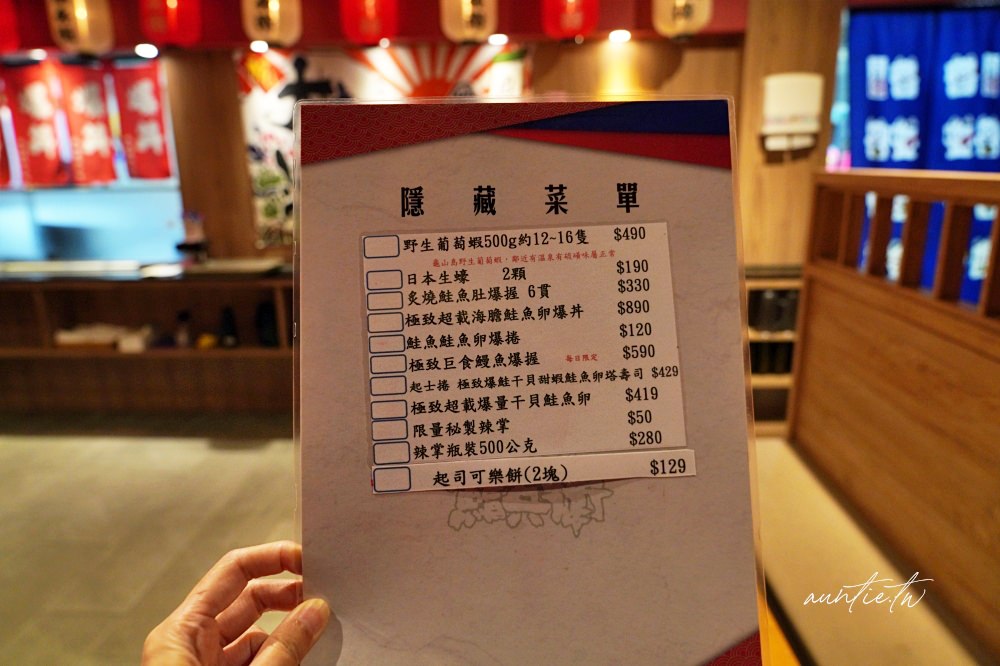 隱藏菜單
野生葡萄蝦500g約12~16隻 $490
龜山島野生葡萄蝦，鄰近有溫泉有硝磺味屬正常
日本生蠔 2顆 $190
炙燒鮭魚肚爆握 6貫 $330
極致超載海膽鮭魚卵爆丼 $890
鮭魚鮭魚卵爆捲 $120
極致巨食鰻魚爆握 每日限定 $590
起士捲 極致爆鮭干貝甜蝦鮭魚卵塔壽司 $429
極致超載爆量干貝鮭魚卵 $419
限量秘製辣掌 $50
辣掌瓶裝500公克 $280
起司可樂餅(2塊) $129
auntie.tw